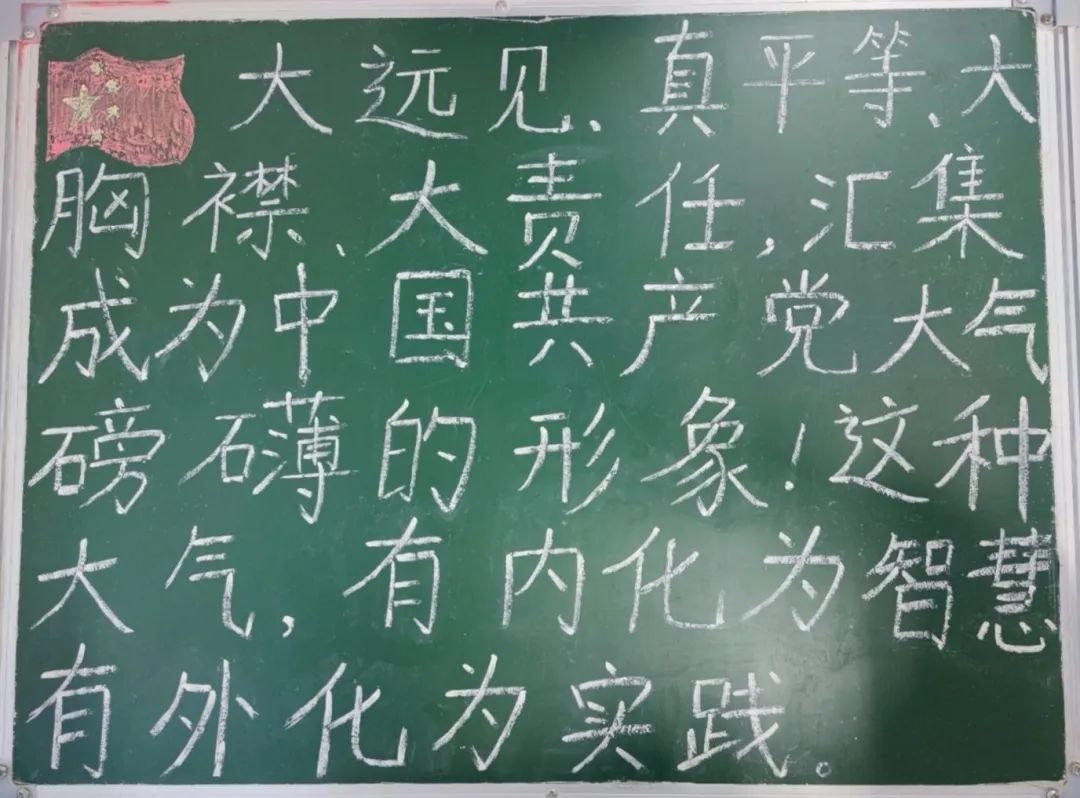 大远见、真平等、大
胸襟、大责任,汇集
成为中国共产党大气
磅礴的形象!这种
大气,有内化为智慧
有外化为实践。